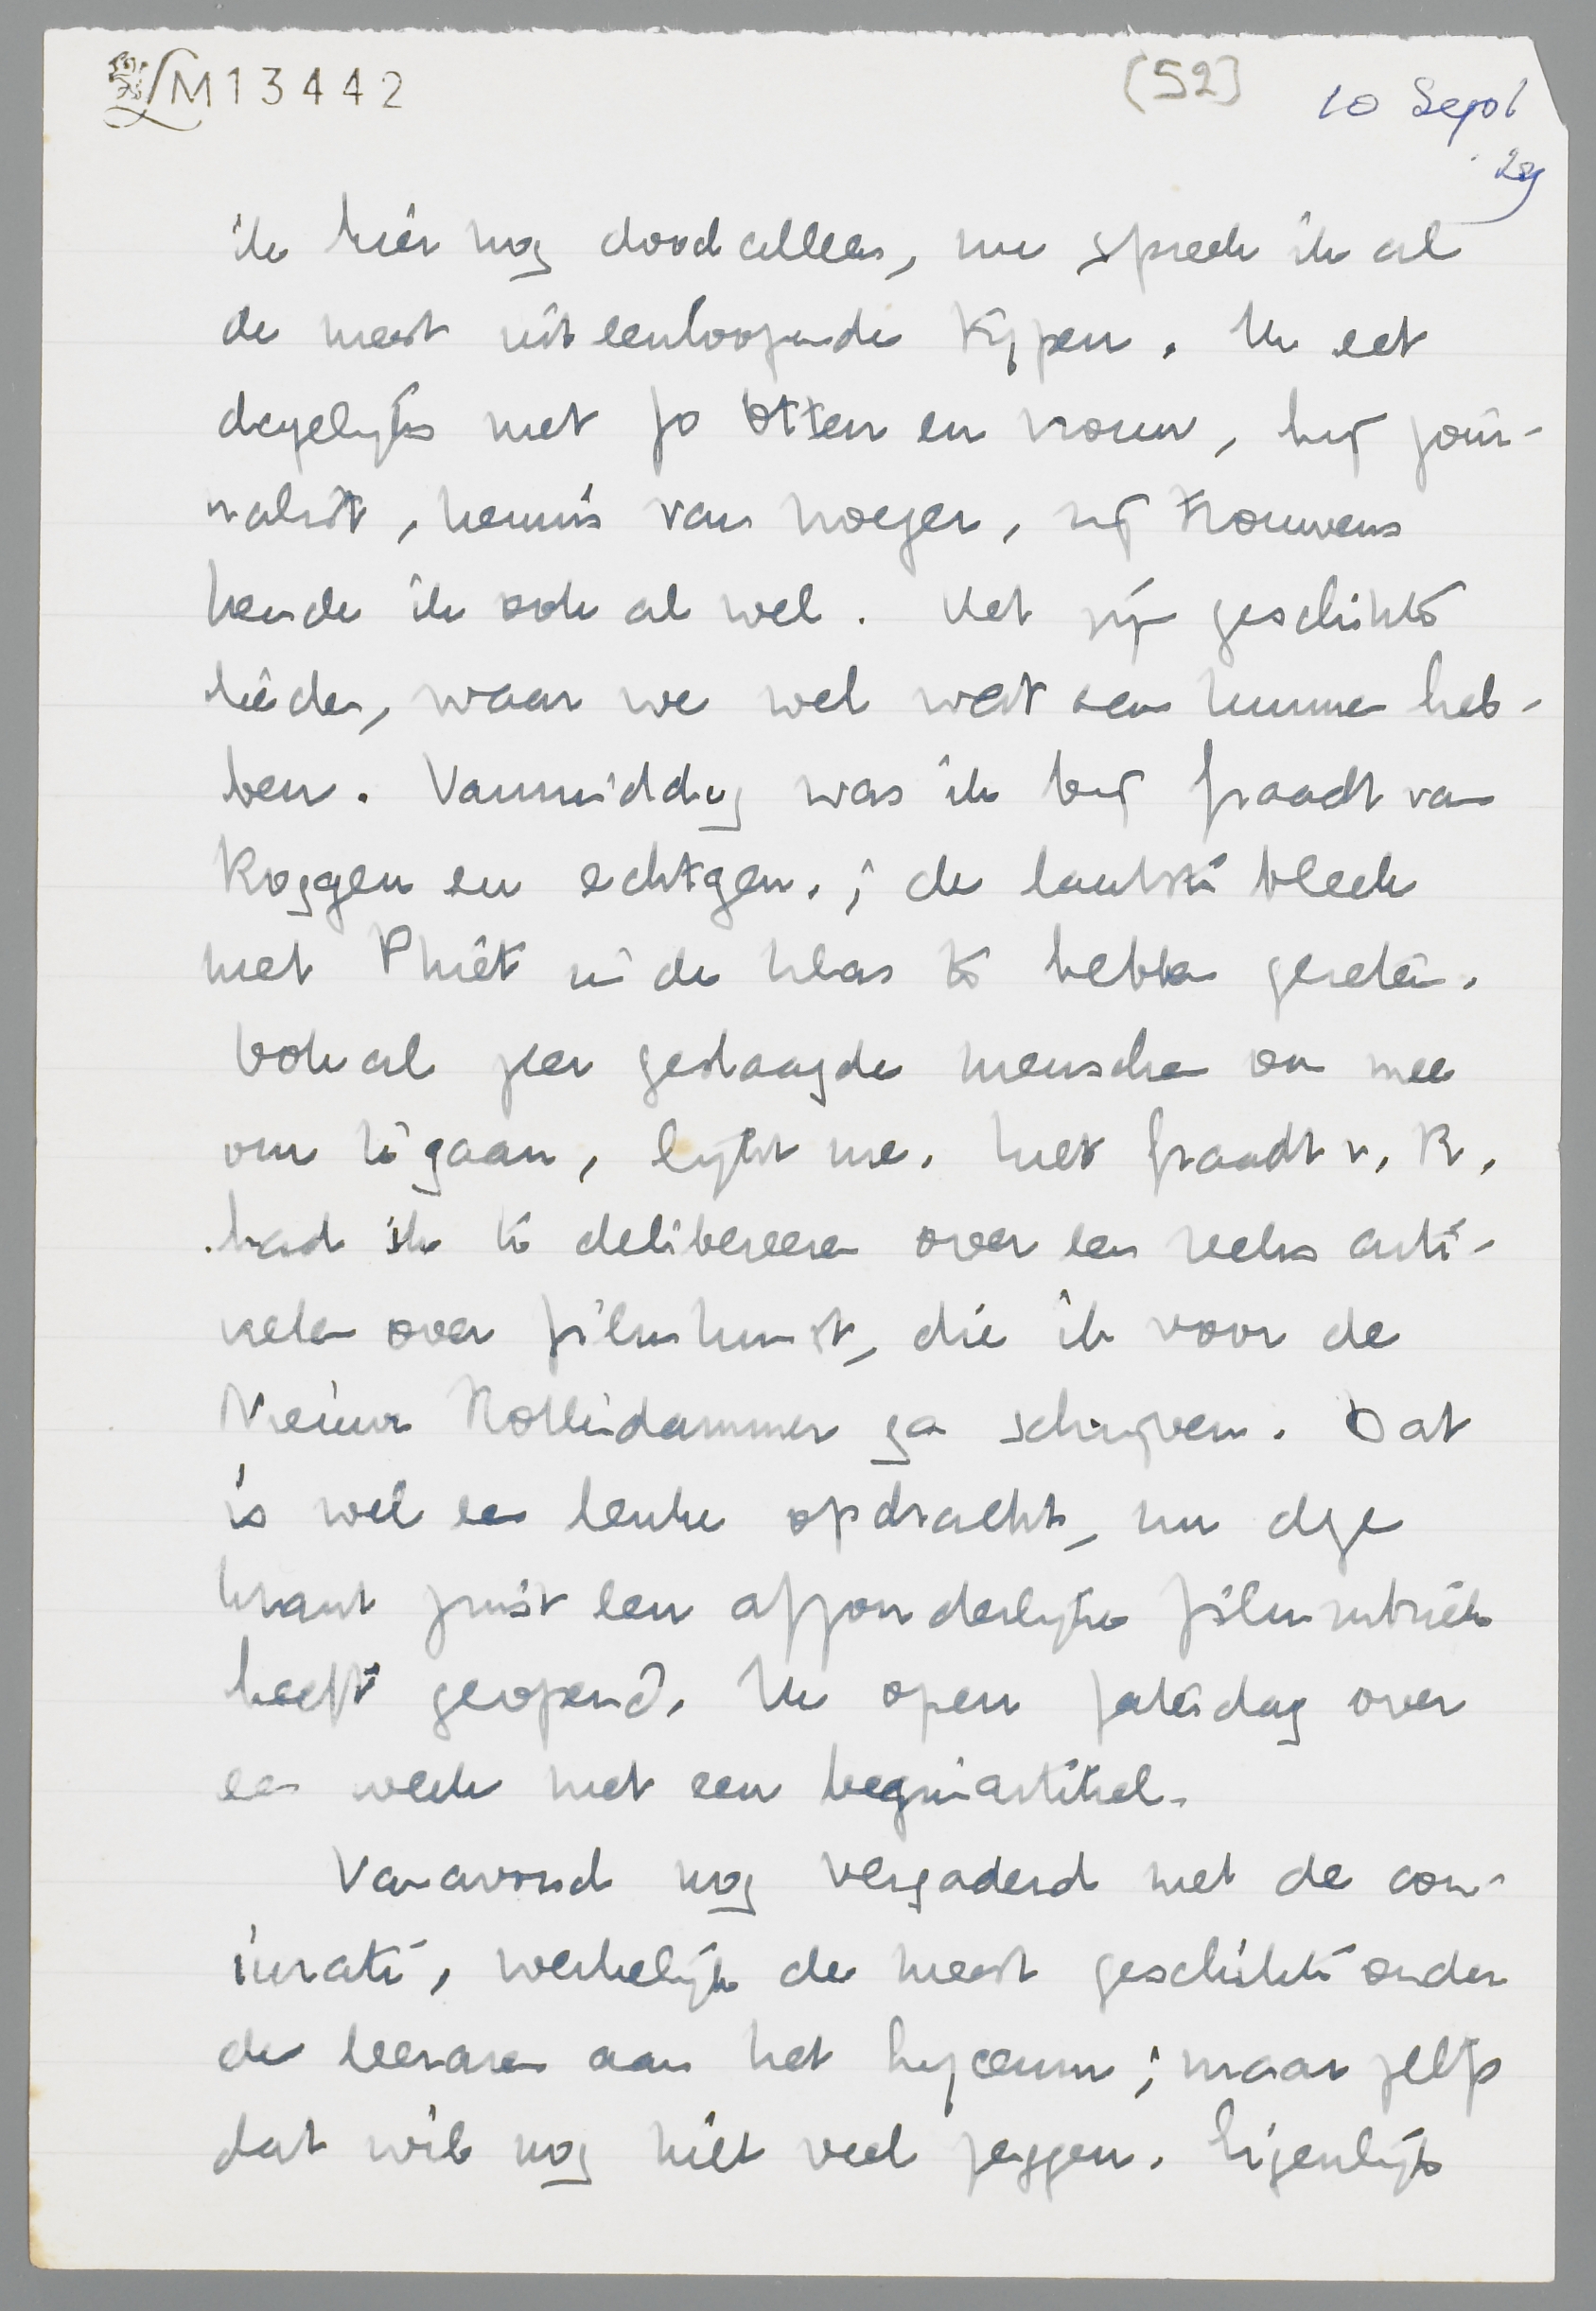 LM 13442
[52]
10 Sept
'29
ik hier nog doodalleen, nu spreek ik al
de meest uiteenloopende typen. Ik eet
dagelijks met Jo Otten en vrouw, hij jour-
nalist, kennis van vroeger, zij trouwens
kende ik ook al wel. Het zijn geschikte
lieden, waar we wel wat aan kunnen heb-
ben. Vanmiddag was ik bij Fraadt van
Roggen en echtgen.; de laatste bleek
met Phiet in de klas te hebben gezeten.
Ook al zeer geslaagde menschen om mee
om te gaan, lijkt me. Met Fraadt v. R.
had ik te delibereeren over een reeks arti-
kelen over filmkunst, die ik voor de
Nieuwe Rotterdammer ga schrijven. Dat
is wel een leuke opdracht, nu deze
krant juist een afzonderlijke filmrubriek
heeft geopend. Ik open Zaterdag over
een week met een beginartikel.
Vanavond nog vergaderd met de con-
iurati, werkelijk de meest geschikte onder
de leeraren aan het Lyceum; maar zelfs
dat wil nog niet veel zeggen. Eigenlijk